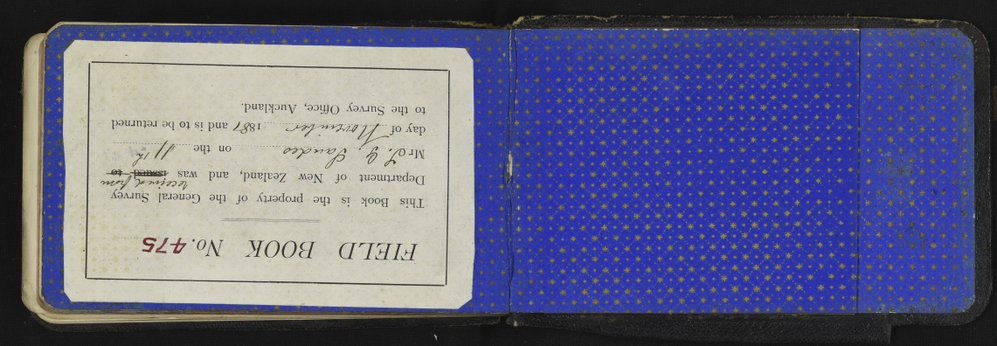 FIELD BOOK No. 475
This Book is the property of the General Survey
received from
Department of New Zealand, and was issued to
Mr L. G. Sandes on the 11th
day of November 1881 and is to be returned
to the Survey Office, Auckland.